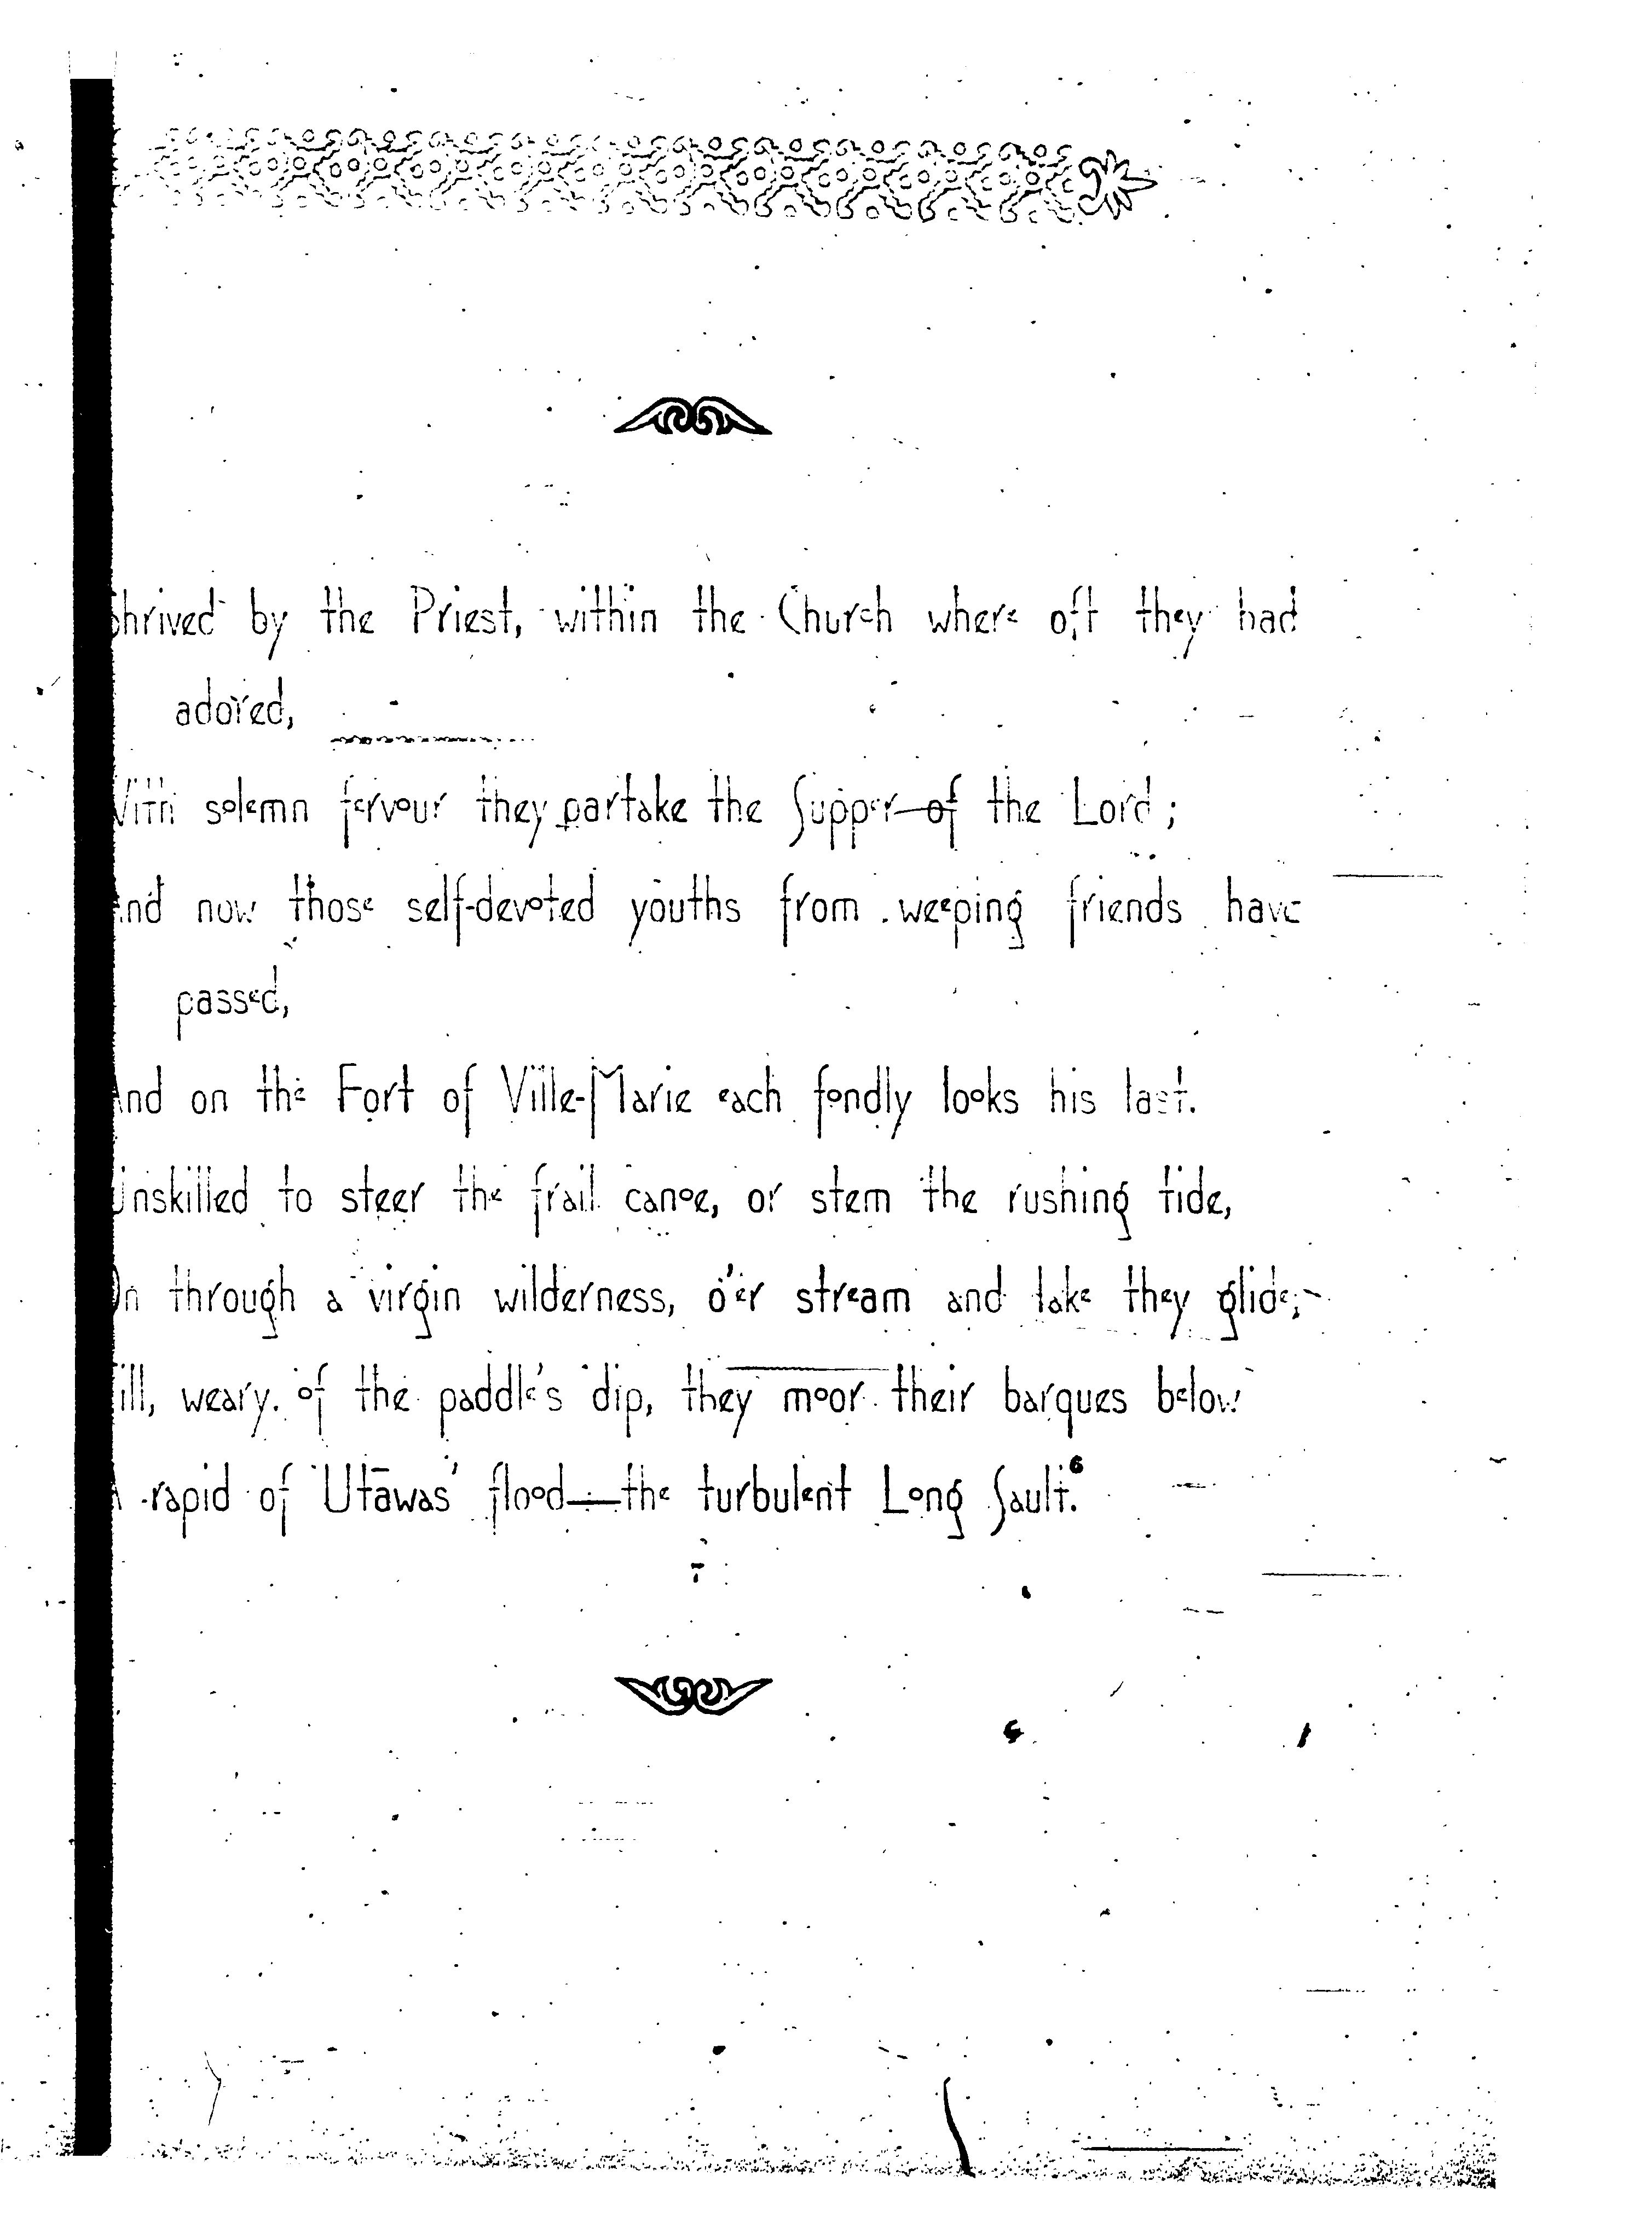 Shrived by the Priest, within the Church where oft they had
adored,
With solemn fervour they partake the Supper of the Lord;
And now those self-devoted youths from weeping friends have
passed,
And on the Fort of Ville-Marie each fondly looks his last.
Unskilled to steer the frail canoe, or stem the rushing tide,
On through a virgin wilderness, o'er stream and lake they glide;
Till, weary of the paddle's dip, they moor their barques below
A rapid of Utāwas' flood—the turbulent Long Sault.⁶